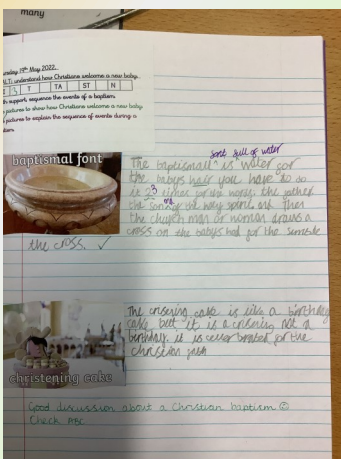 many
ursday 19th May 2022.
ALT: understand how Christians welcome a new baby.
I T TA ST N
th support, sequence the events of a baptism.
pictures to show how Christians welcome a new baby.
pictures to explain the sequence of events during a
baptismal font
font full of water
The baptismall ^ is water for
the babys hair you have to do
it 3 times for the the father
the son of the holy spirit. and then
the church man or woman draws a
cross on the babys hed for the
the cross. ✓
The crisering cake is like a birthday
cake but it is a crisering not a
birthday. it is for the
christian
christening cake
Good discussion about a Christian baptism ☺
Check ABC